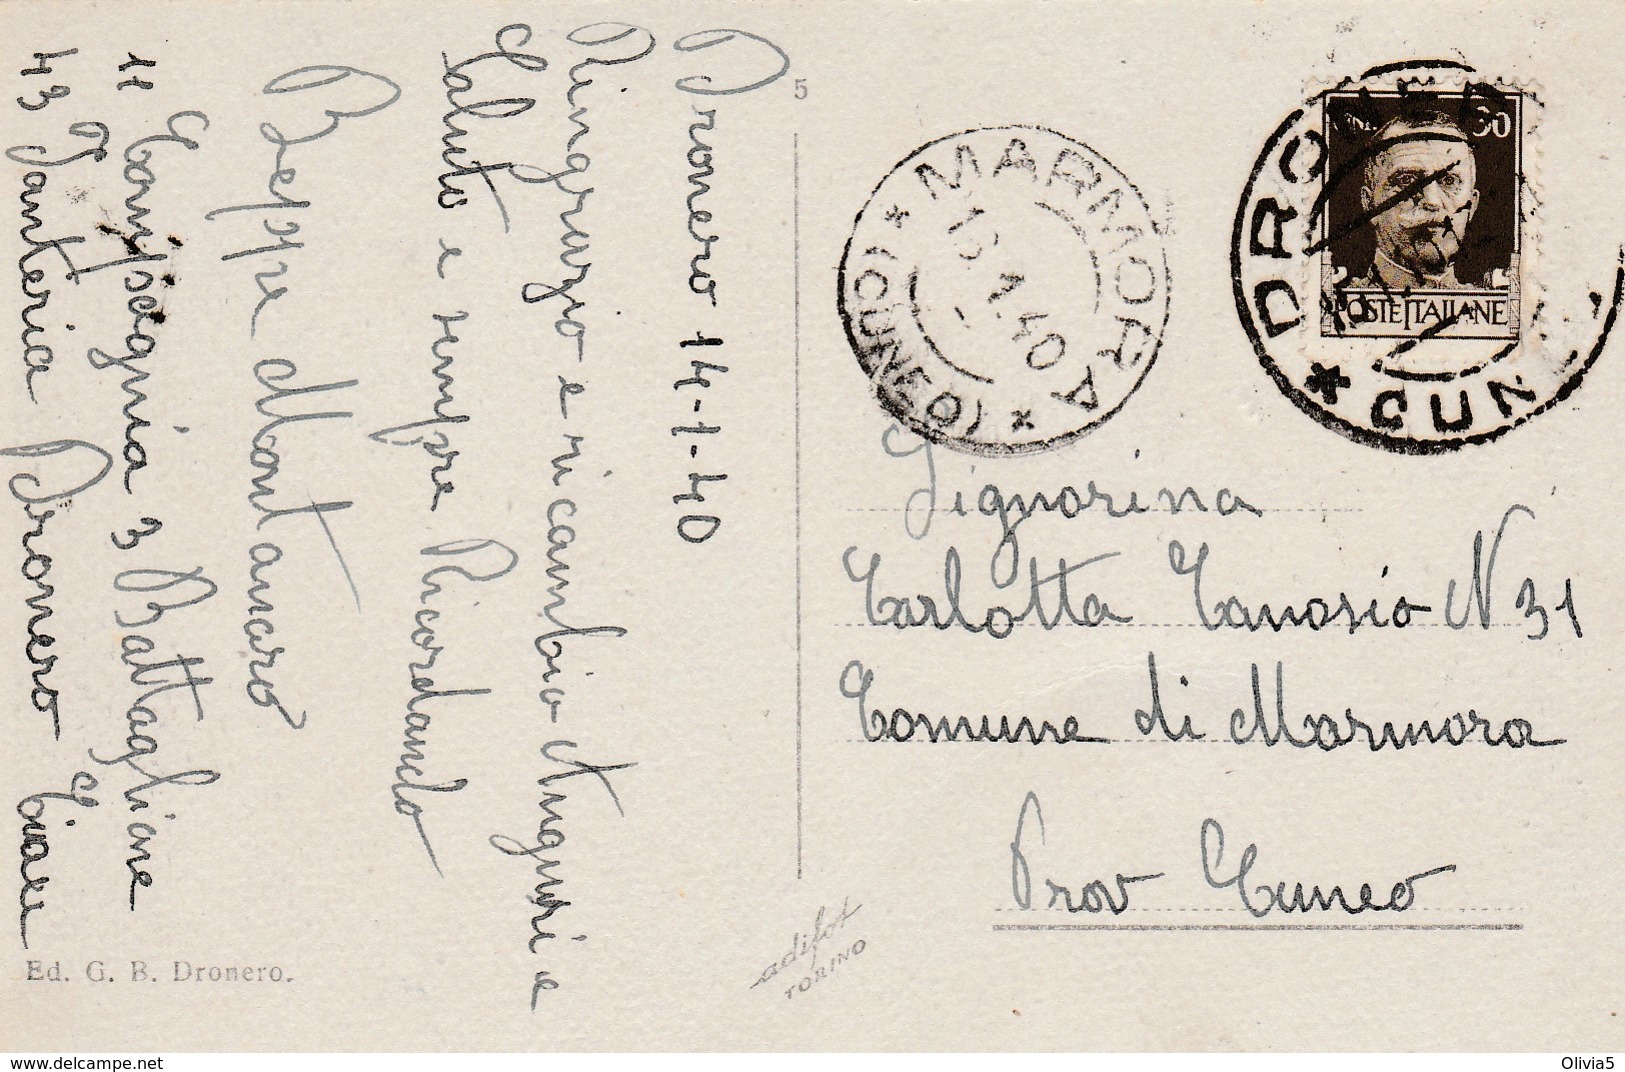 Dronero 14-1-40
Ringrazio e ricambio Auguri e
Saluto e sempre Ricordando
Beppe Montanaro
11 Compagnia 3 Battaglione
43 Fanteria Dronero
Ed. G. B. Dronero.
5
adifot
TORINO
* MARMORA * (CUNEO)
15.1.40
DRONERO * CUN
CENT. 30
POSTE ITALIANE
Signorina
Carlotta Tanosio N 31
Comune di Marmora
Prov Cuneo
www.delcampe.net
Olivia5